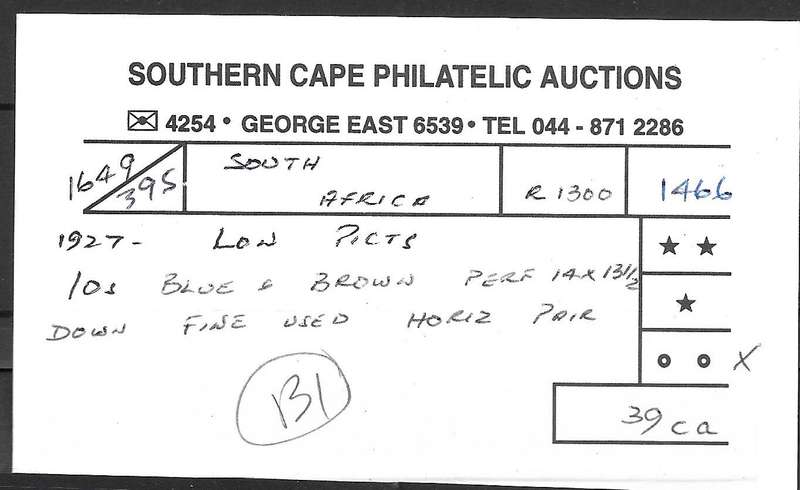 SOUTHERN CAPE PHILATELIC AUCTIONS
4254 • GEORGE EAST 6539 • TEL 044 - 871 2286
1649/395 SOUTH AFRICA R 1300 1466
1927- LON PICTS ★ ★
10s BLUE & BROWN PERF 14 X 13 1/2 ★
DOWN FINE USED HORIZ PAIR
X
B1
39 ca